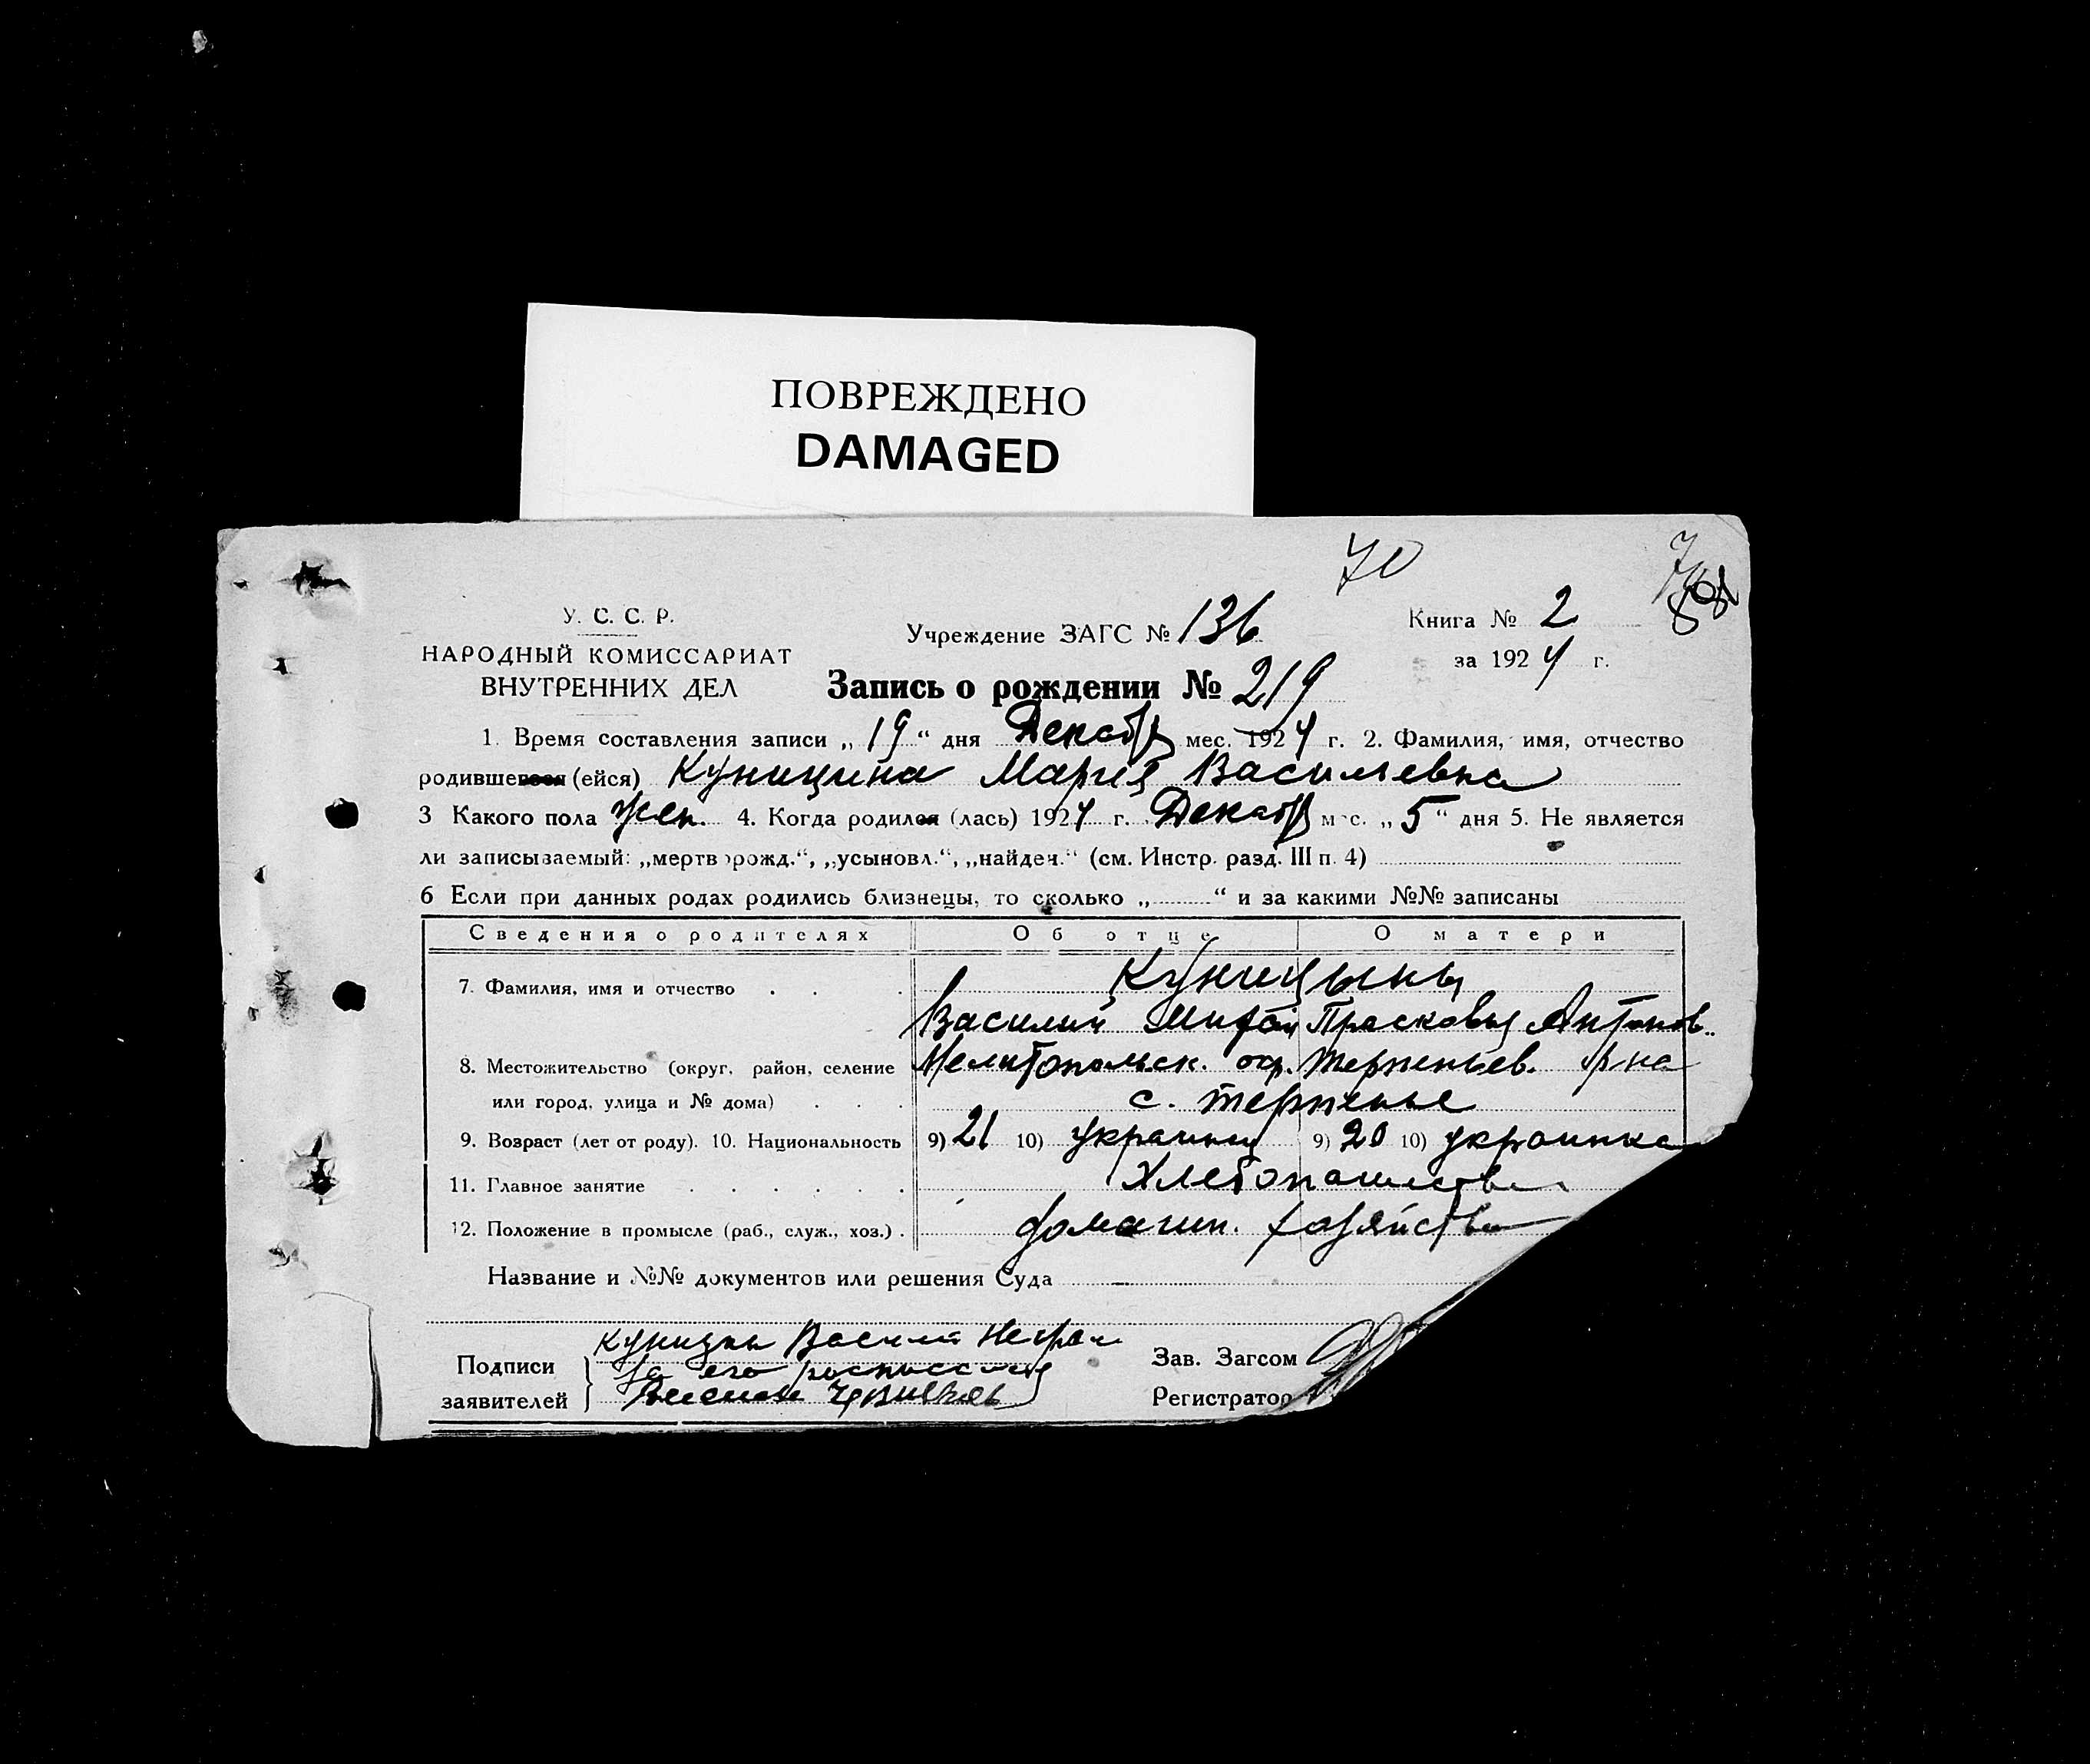 ПОВРЕЖДЕНО
DAMAGED
70
У. С. С. Р.
НАРОДНЫЙ КОМИССАРИАТ
ВНУТРЕННИХ ДЕЛ
Учреждение ЗАГС № 136
Книга № 2
за 1924 г.
Запись о рождении № 219
1. Время составления записи „19“ дня Декабр мес. 1924 г. 2. Фамилия, имя, отчество
родившегося (ейся) Куницина Мария Васильевна
3 Какого пола жен. 4. Когда родился (лась) 1924 г. Декабр мес. „5“ дня 5. Не является
ли записываемый: „мертворожд.“, „усыновл.“, „найден.“ (см. Инстр. разд. III п. 4)
6 Если при данных родах родились близнецы, то сколько „ “ и за какими №№ записаны
Сведения о родителях Об отце О матери
7. Фамилия, имя и отчество Куницыны
Василий Прасковья Антонов.
8. Местожительство (округ, район, селение Мелитопольск. окр. Терпеньев. р на
или город, улица и № дома) с. Терпенье
9. Возраст (лет от роду). 10. Национальность 9) 21 10) украинец 9) 20 10) украинка
11. Главное занятие Хлебопашество
12. Положение в промысле (раб., служ., хоз.) домашн. хозяйство
Название и №№ документов или решения Суда
Подписи
заявителей
Куницын Василий
За его росписался
Зав. Загсом
Регистратор